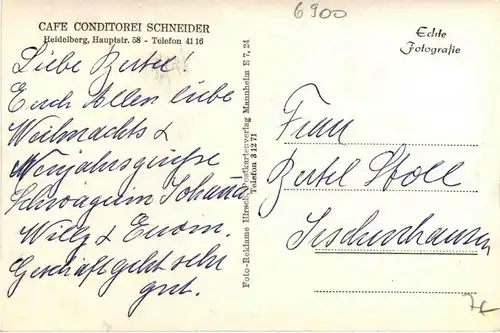 6900
CAFE CONDITOREI SCHNEIDER
Heidelberg, Hauptstr. 58 - Telefon 41 16
Echte
Fotografie
Liebe Bertel!
Euch Allen liebe
Weihnachts &
Neujahrsgrüße
Schwägerin Johanna
Willy &
Geschäft geht sehr
gut.
Foto-Reklame Hirsch, Postkartenverlag Mannheim E 7, 24
Telefon 3 12 71
Frau
Bertel Stoll